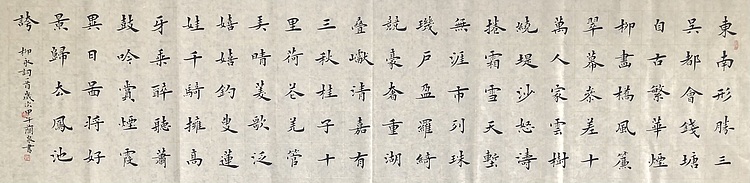 東南形勝三
吳都會錢塘
自古繁華煙
柳畫橋風簾
翠幕參差十
萬人家雲樹
繞堤沙怒濤
捲霜雪天塹
無涯市列珠
璣戶盈羅綺
競豪奢重湖
疊巘清嘉有
三秋桂子十
里荷花羌管
弄晴菱歌泛
嬉嬉釣叟蓮
娃千騎擁高
牙乘醉聽蕭
鼓吟賞煙霞
異日圖將好
景歸去鳳池
誇
柳永詞一首歲次甲午蘭書